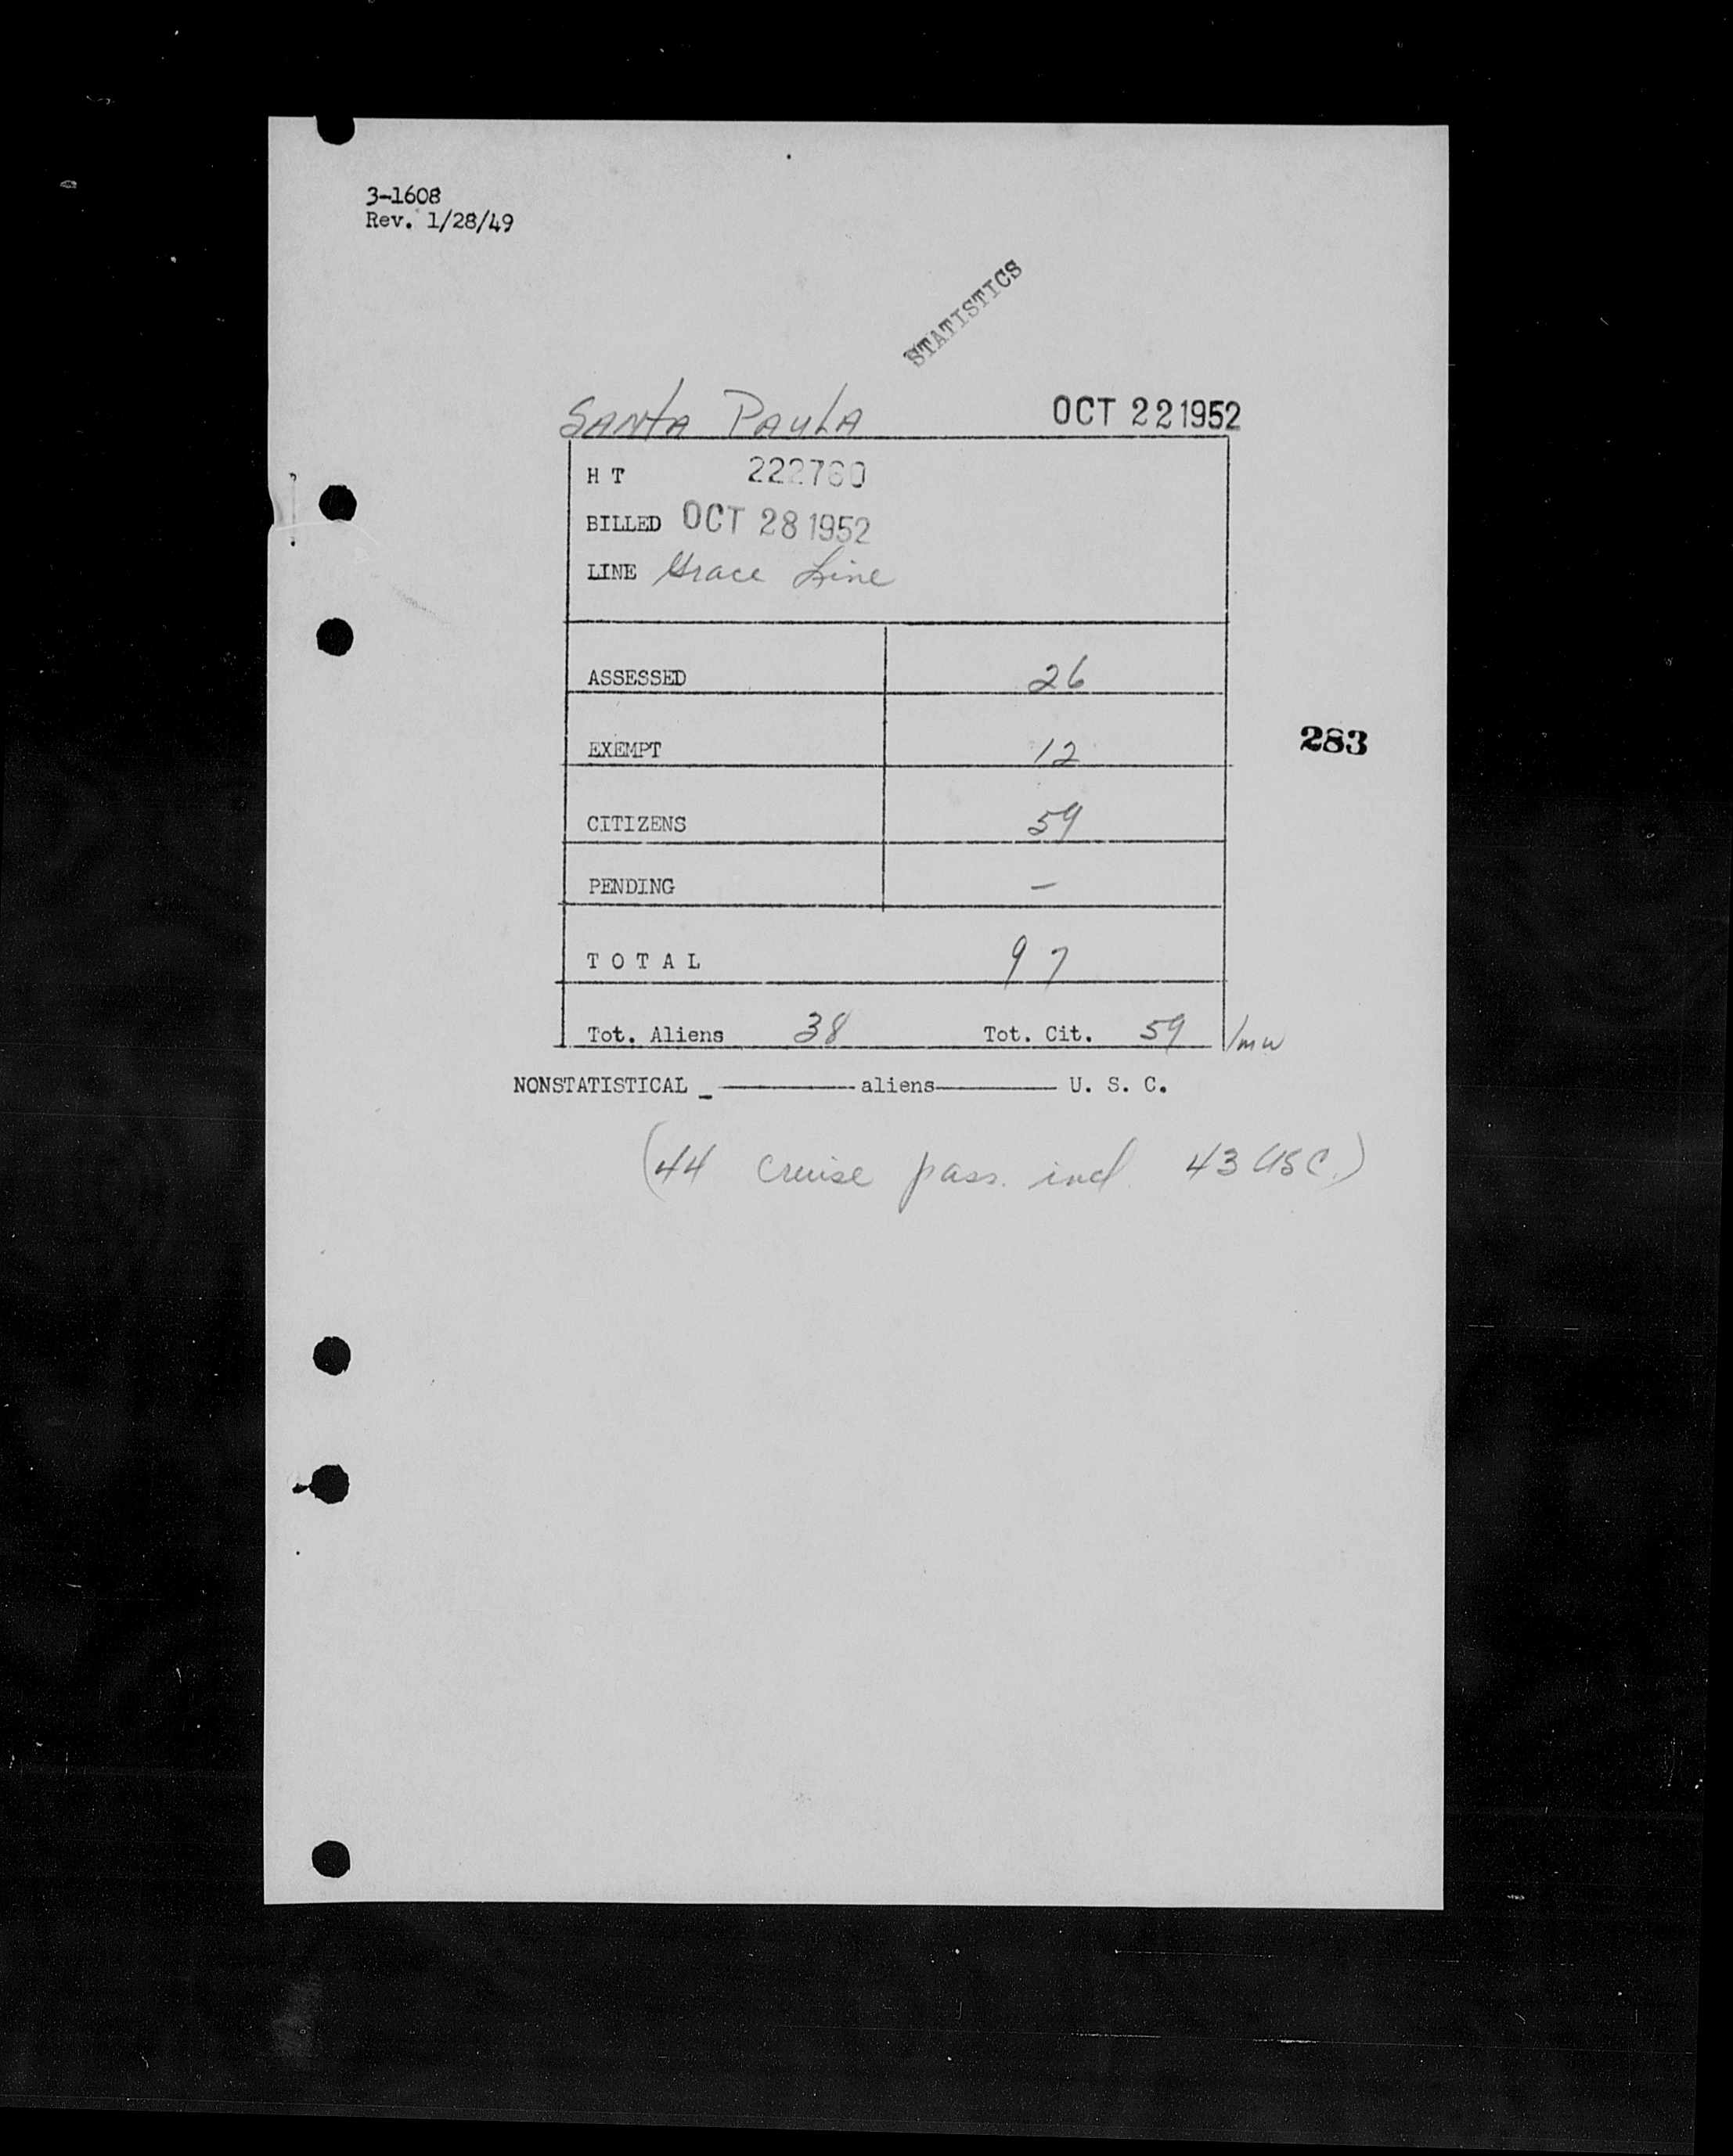 3-1608
Rev. 1/28/49
STATISTICS
SANTA PAULA OCT 22 1952
H T 222760
BILLED OCT 28 1952
LINE Grace Line
ASSESSED 26
EXEMPT 12
283
CITIZENS 59
PENDING –
T O T A L 97
Tot. Aliens 38 Tot. Cit. 59 /mw
NONSTATISTICAL _ ———— aliens ———— U. S. C.
(44 cruise pass. incl. 43 USC.)